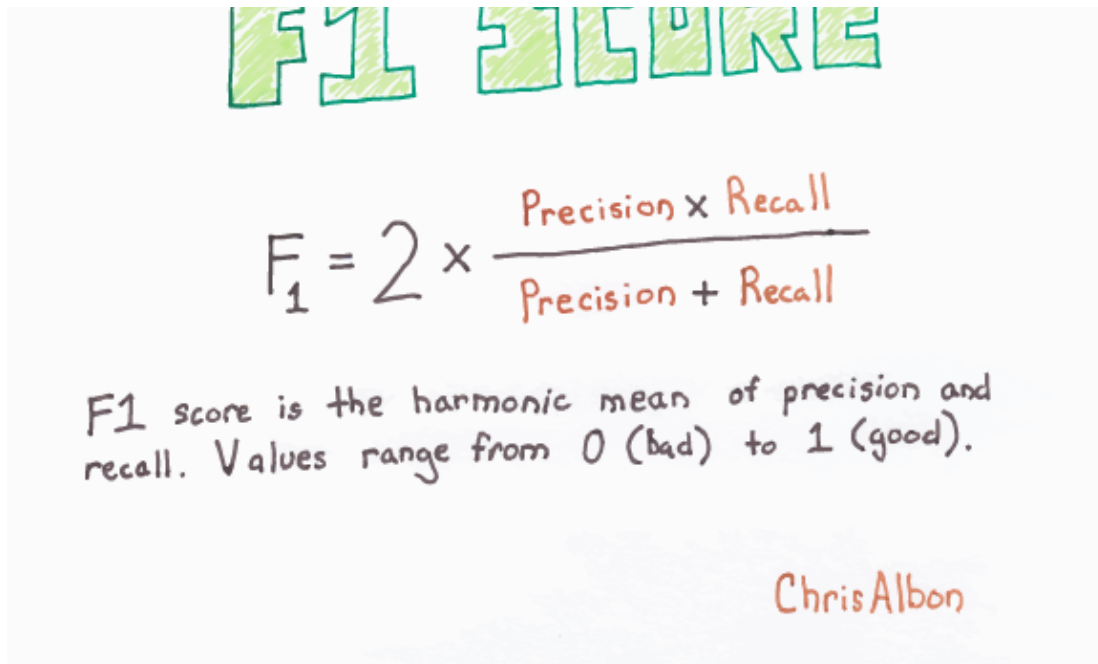 F1 SCORE
F₁ = 2 × (Precision × Recall) / (Precision + Recall)
F1 score is the harmonic mean of precision and
recall. Values range from 0 (bad) to 1 (good).
Chris Albon